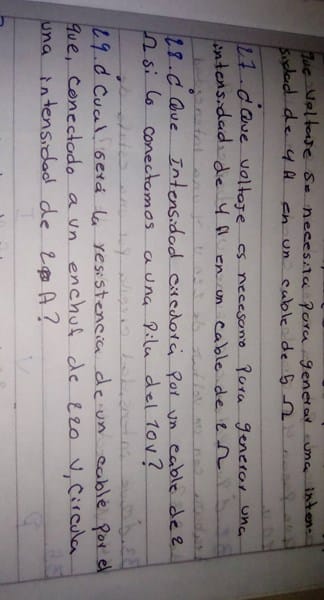 que voltaje se necesita para generar una inten-
sidad de 4 A en un cable de 5 Ω
27. ¿Que voltaje es necesario para generar una
intensidad de 4 A en un cable de 2 Ω
28. ¿Que Intensidad circulara por un cable de 2
Ω si lo conectamos a una pila del 10 V?
29. ¿Cual será la resistencia de un cable por el
que, conectado a un enchuf de 220 V, circula
una intensidad de A?